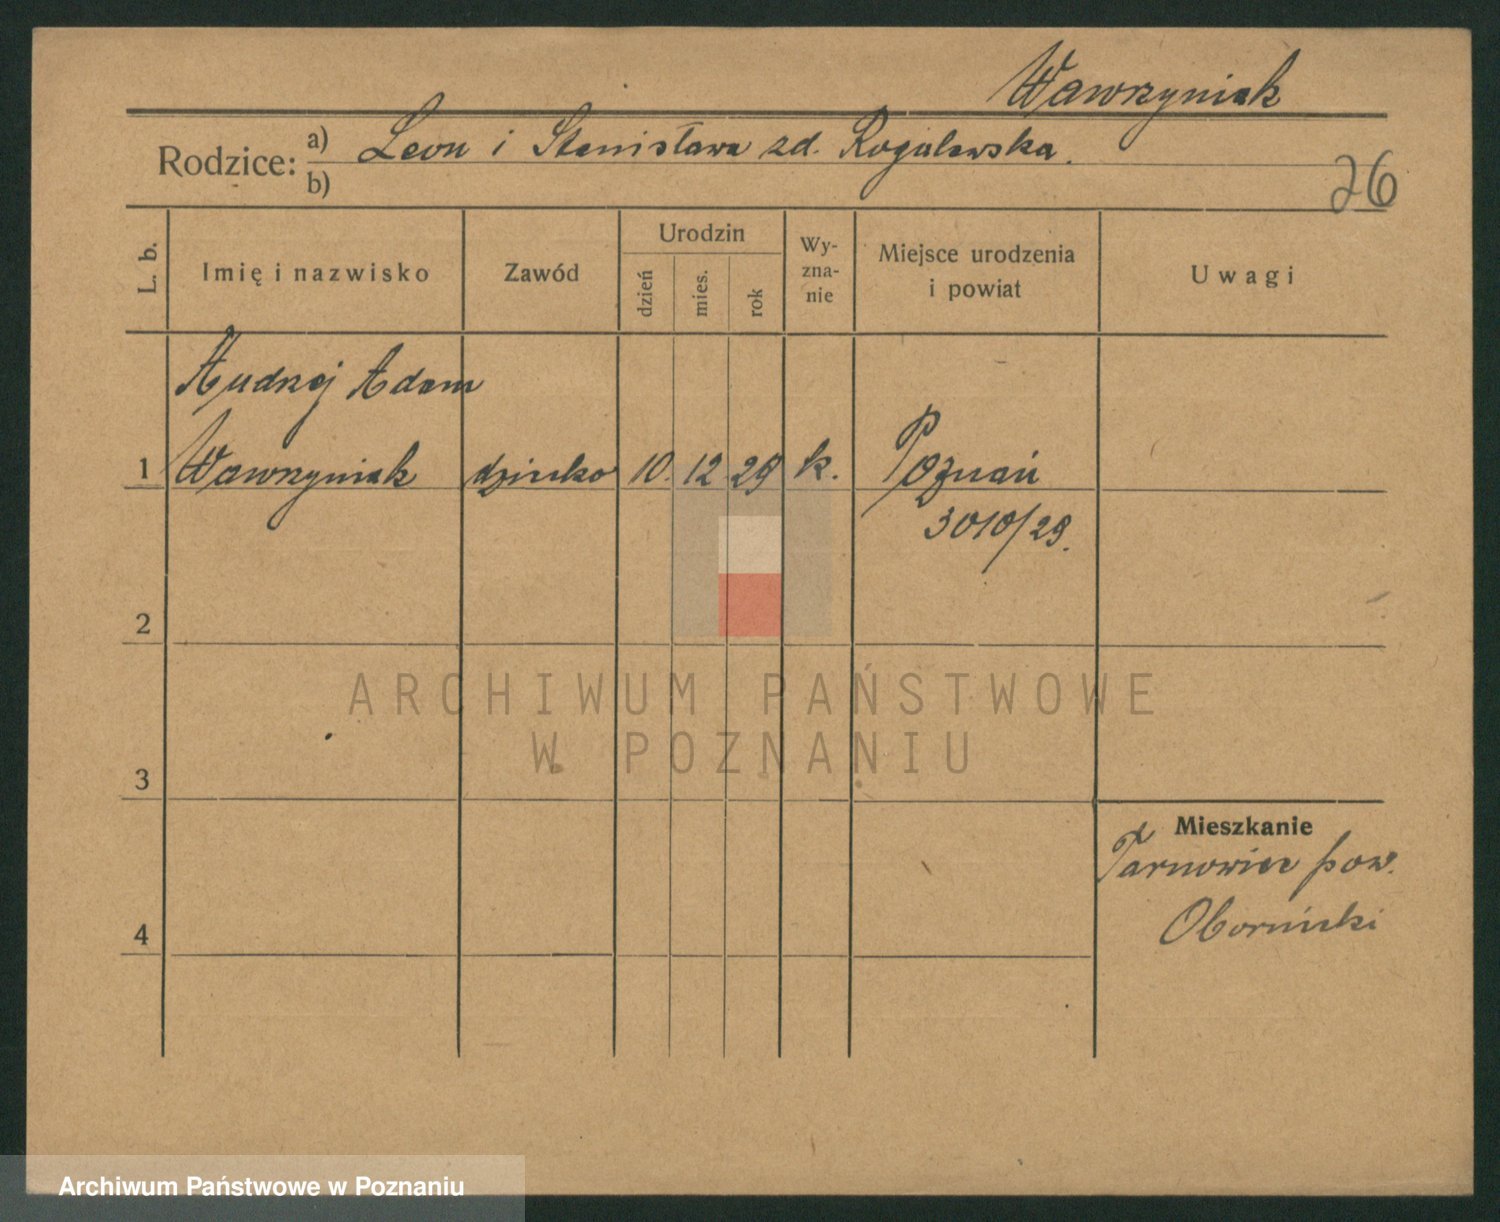 Wawrzyniak
Rodzice: a) Leon i Stanisława zd. Rogalewska.
b)
26
L. b.
Imię i nazwisko
Zawód
Urodzin
dzień
mies.
rok
Wy-
zna-
nie
Miejsce urodzenia
i powiat
Uwagi
Andrzej Adam
1 Wawrzyniak dziecko 10. 12 29 k. Poznań
3010/29.
2
ARCHIWUM PAŃSTWOWE
W POZNANIU
3
Mieszkanie
pow.
4
Obornicki
Archiwum Państwowe w Poznaniu